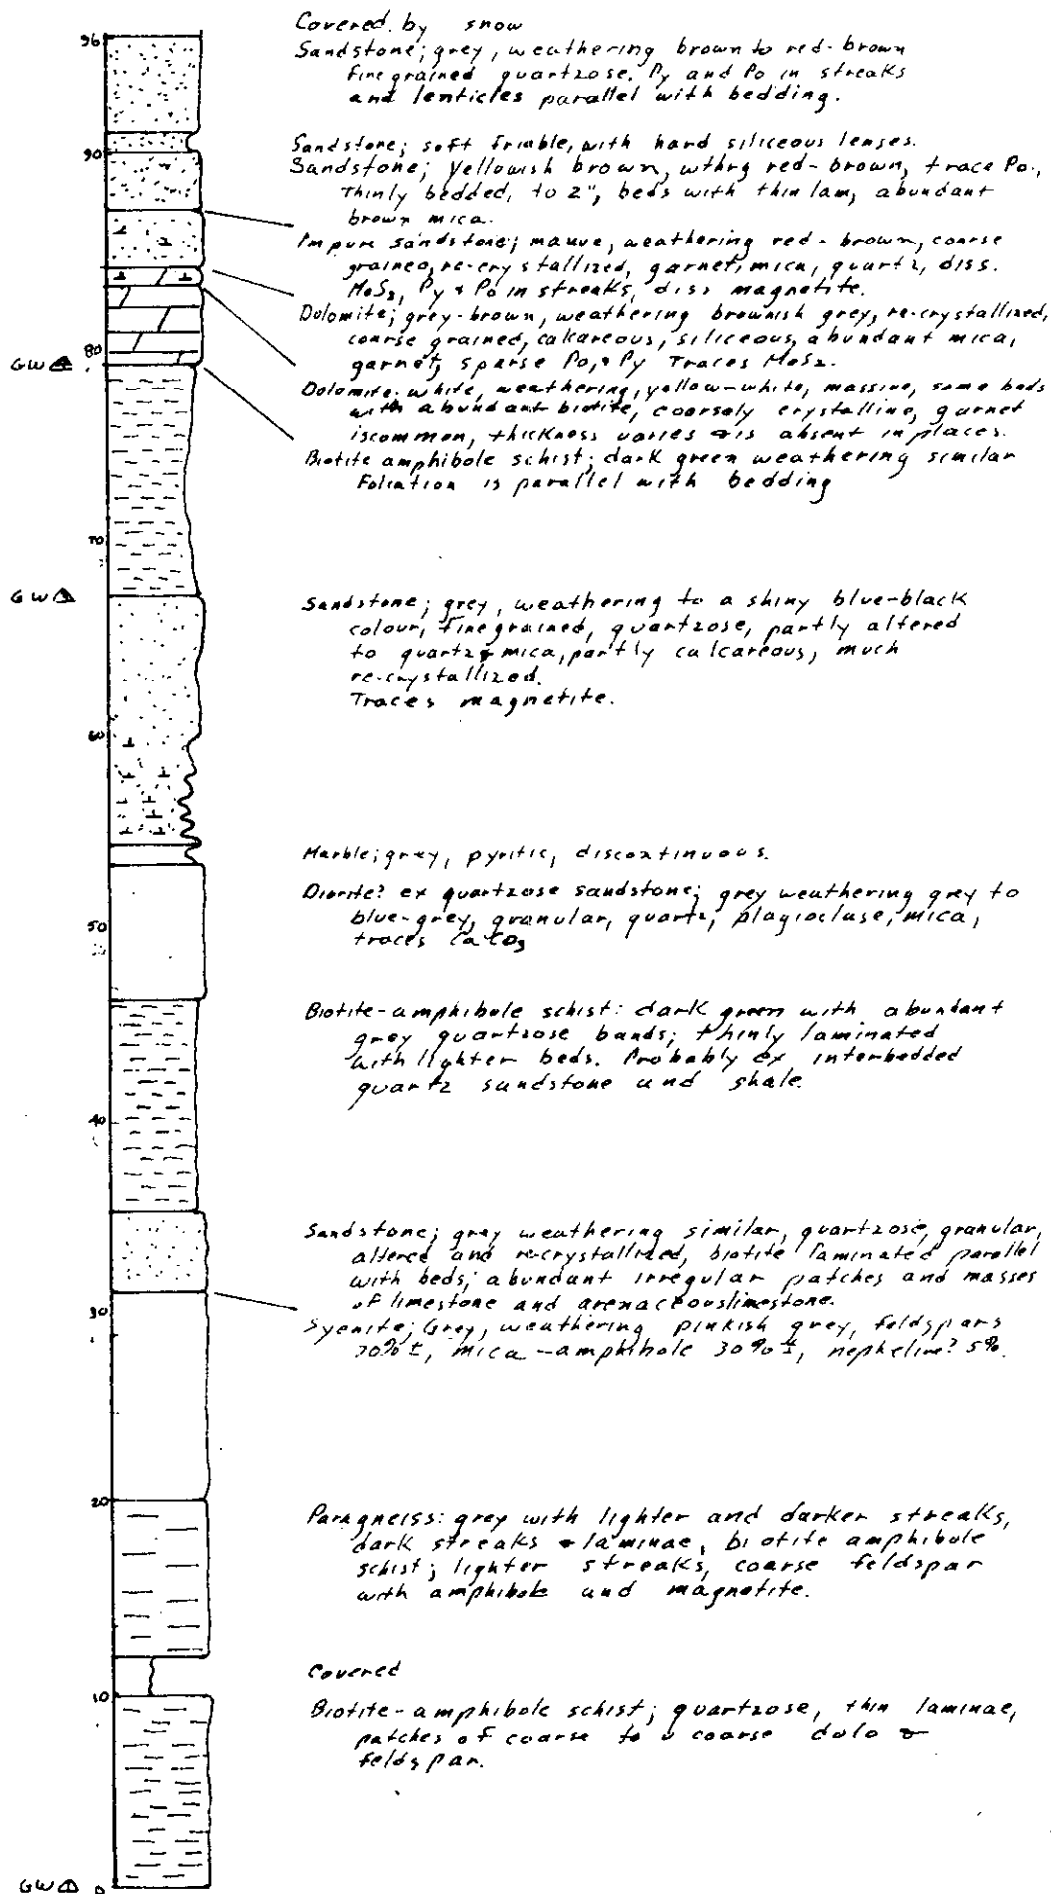 Covered by snow
96
Sandstone; grey, weathering brown to red-brown
fine grained quartzose. Py and Po in streaks
and lenticles parallel with bedding.
Sandstone; soft friable, with hard siliceous lenses.
90
Sandstone; yellowish brown, wthrg red-brown, trace Po.,
Thinly bedded, to 2", beds with thin lam, abundant
brown mica.
Impure sandstone; mauve, weathering red-brown, coarse
grained, re-crystallized, garnet, mica, quartz, diss.
MoS2, Py + Po in streaks, diss magnetite.
Dolomite; grey-brown, weathering brownish grey, re-crystallized,
coarse grained, calcareous, siliceous, abundant mica,
garnet, sparse Po, + Py Traces MoS2.
80
GW
Dolomite. white, weathering, yellow-white, massive, some beds
with abundant biotite, coarsely crystalline, garnet
iscommon, thickness varies + is absent in places.
Biotite amphibole schist; dark green weathering similar
Foliation is parallel with bedding
70
GW
Sandstone; grey, weathering to a shiny blue-black
colour, fine grained, quartzose, partly altered
to quartz + mica, partly calcareous, much
re-crystallized.
Traces magnetite.
60
Marble; grey, pyritic, discontinuous.
Diorite? ex quartzose sandstone; grey weathering grey to
blue-grey, granular, quartz, plagioclase, mica,
traces CaCO3
50
Biotite-amphibole schist: dark green with abundant
grey quartzose bands; thinly laminated
with lighter beds. Probably ex interbedded
quartz sandstone and shale.
40
Sandstone; grey weathering similar, quartzose, granular,
altered and re-crystallized, biotite laminated parallel
with beds; abundant irregular patches and masses
of limestone and arenaceouslimestone.
30
Syenite; Grey, weathering pinkish grey, feldspars
70% ±, mica-amphibole 30% ±, nepheline? 5%.
20
Paragneiss: grey with lighter and darker streaks,
dark streaks + laminae, biotite amphibole
schist; lighter streaks, coarse feldspar
with amphibole and magnetite.
Covered
10
Biotite-amphibole schist; quartzose, thin laminae,
patches of coarse to v coarse dolo +
feldspar.
GW 0